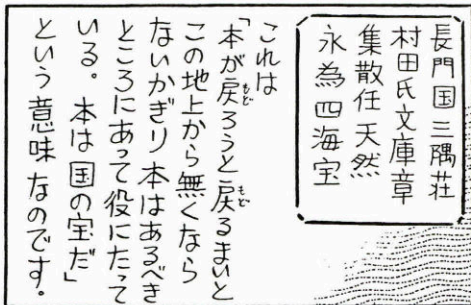 長門国三隅荘
村田氏文庫章
集散任天然
永為四海宝
これは
「本が戻ろうと戻るまいと
この地上から無くなら
ないかぎり本はあるべき
ところにあって役にたって
いる。本は国の宝だ」
という意味なのです.